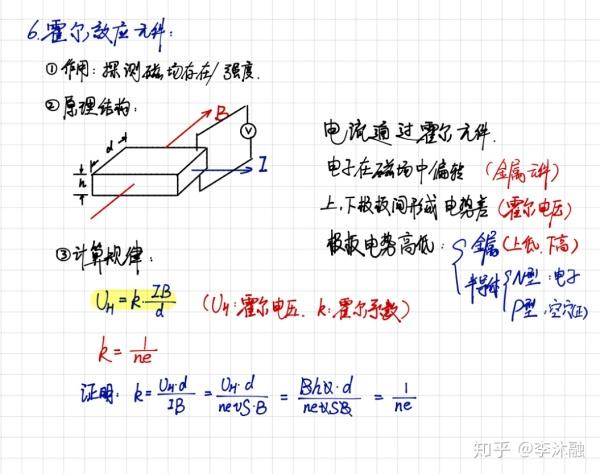 6.霍尔效应元件:
①作用:探测磁场存在/强度.
②原理结构:
B
d
V
I
h
电流通过霍尔元件.
电子在磁场中偏转 (金属元件)
上、下极板间形成电势差(霍尔电压)
极板电势高低: { 金属(上低、下高)
半导体 { N型:电子
P型:空穴(正)
③计算规律:
U_H = k·\frac{IB}{d} (U_H:霍尔电压、k:霍尔系数)
k = \frac{1}{ne}
证明: k = \frac{U_H·d}{IB} = \frac{U_H·d}{nevS·B} = \frac{Bhv·d}{nevSB} = \frac{1}{ne}
知乎 @李沐融